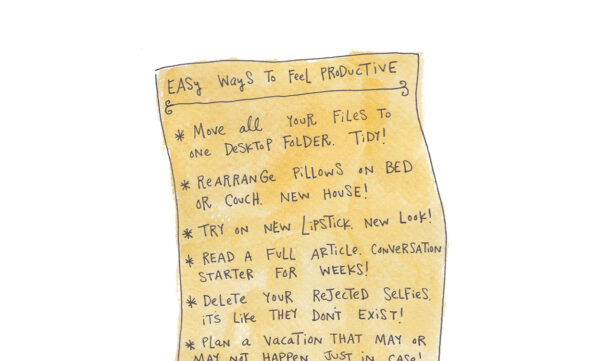 EASY WAYS TO FEEL PRODUCTIVE
* MOVE all YOUR FILES TO
ONE DESKTOP FOLDER. TIDY!
* REARRANGE PILLOWS ON BED
OR COUCH. NEW HOUSE!
* TRY ON NEW LIPSTICK. NEW LOOK!
* READ A FULL ARTICLE. CONVERSATION
STARTER FOR WEEKS!
* DELETE YOUR REJECTED SELFIES.
IT'S LIKE THEY DON'T EXIST!
* PLAN A VACATION THAT MAY OR
MAY NOT HAPPEN. JUST IN CASE!